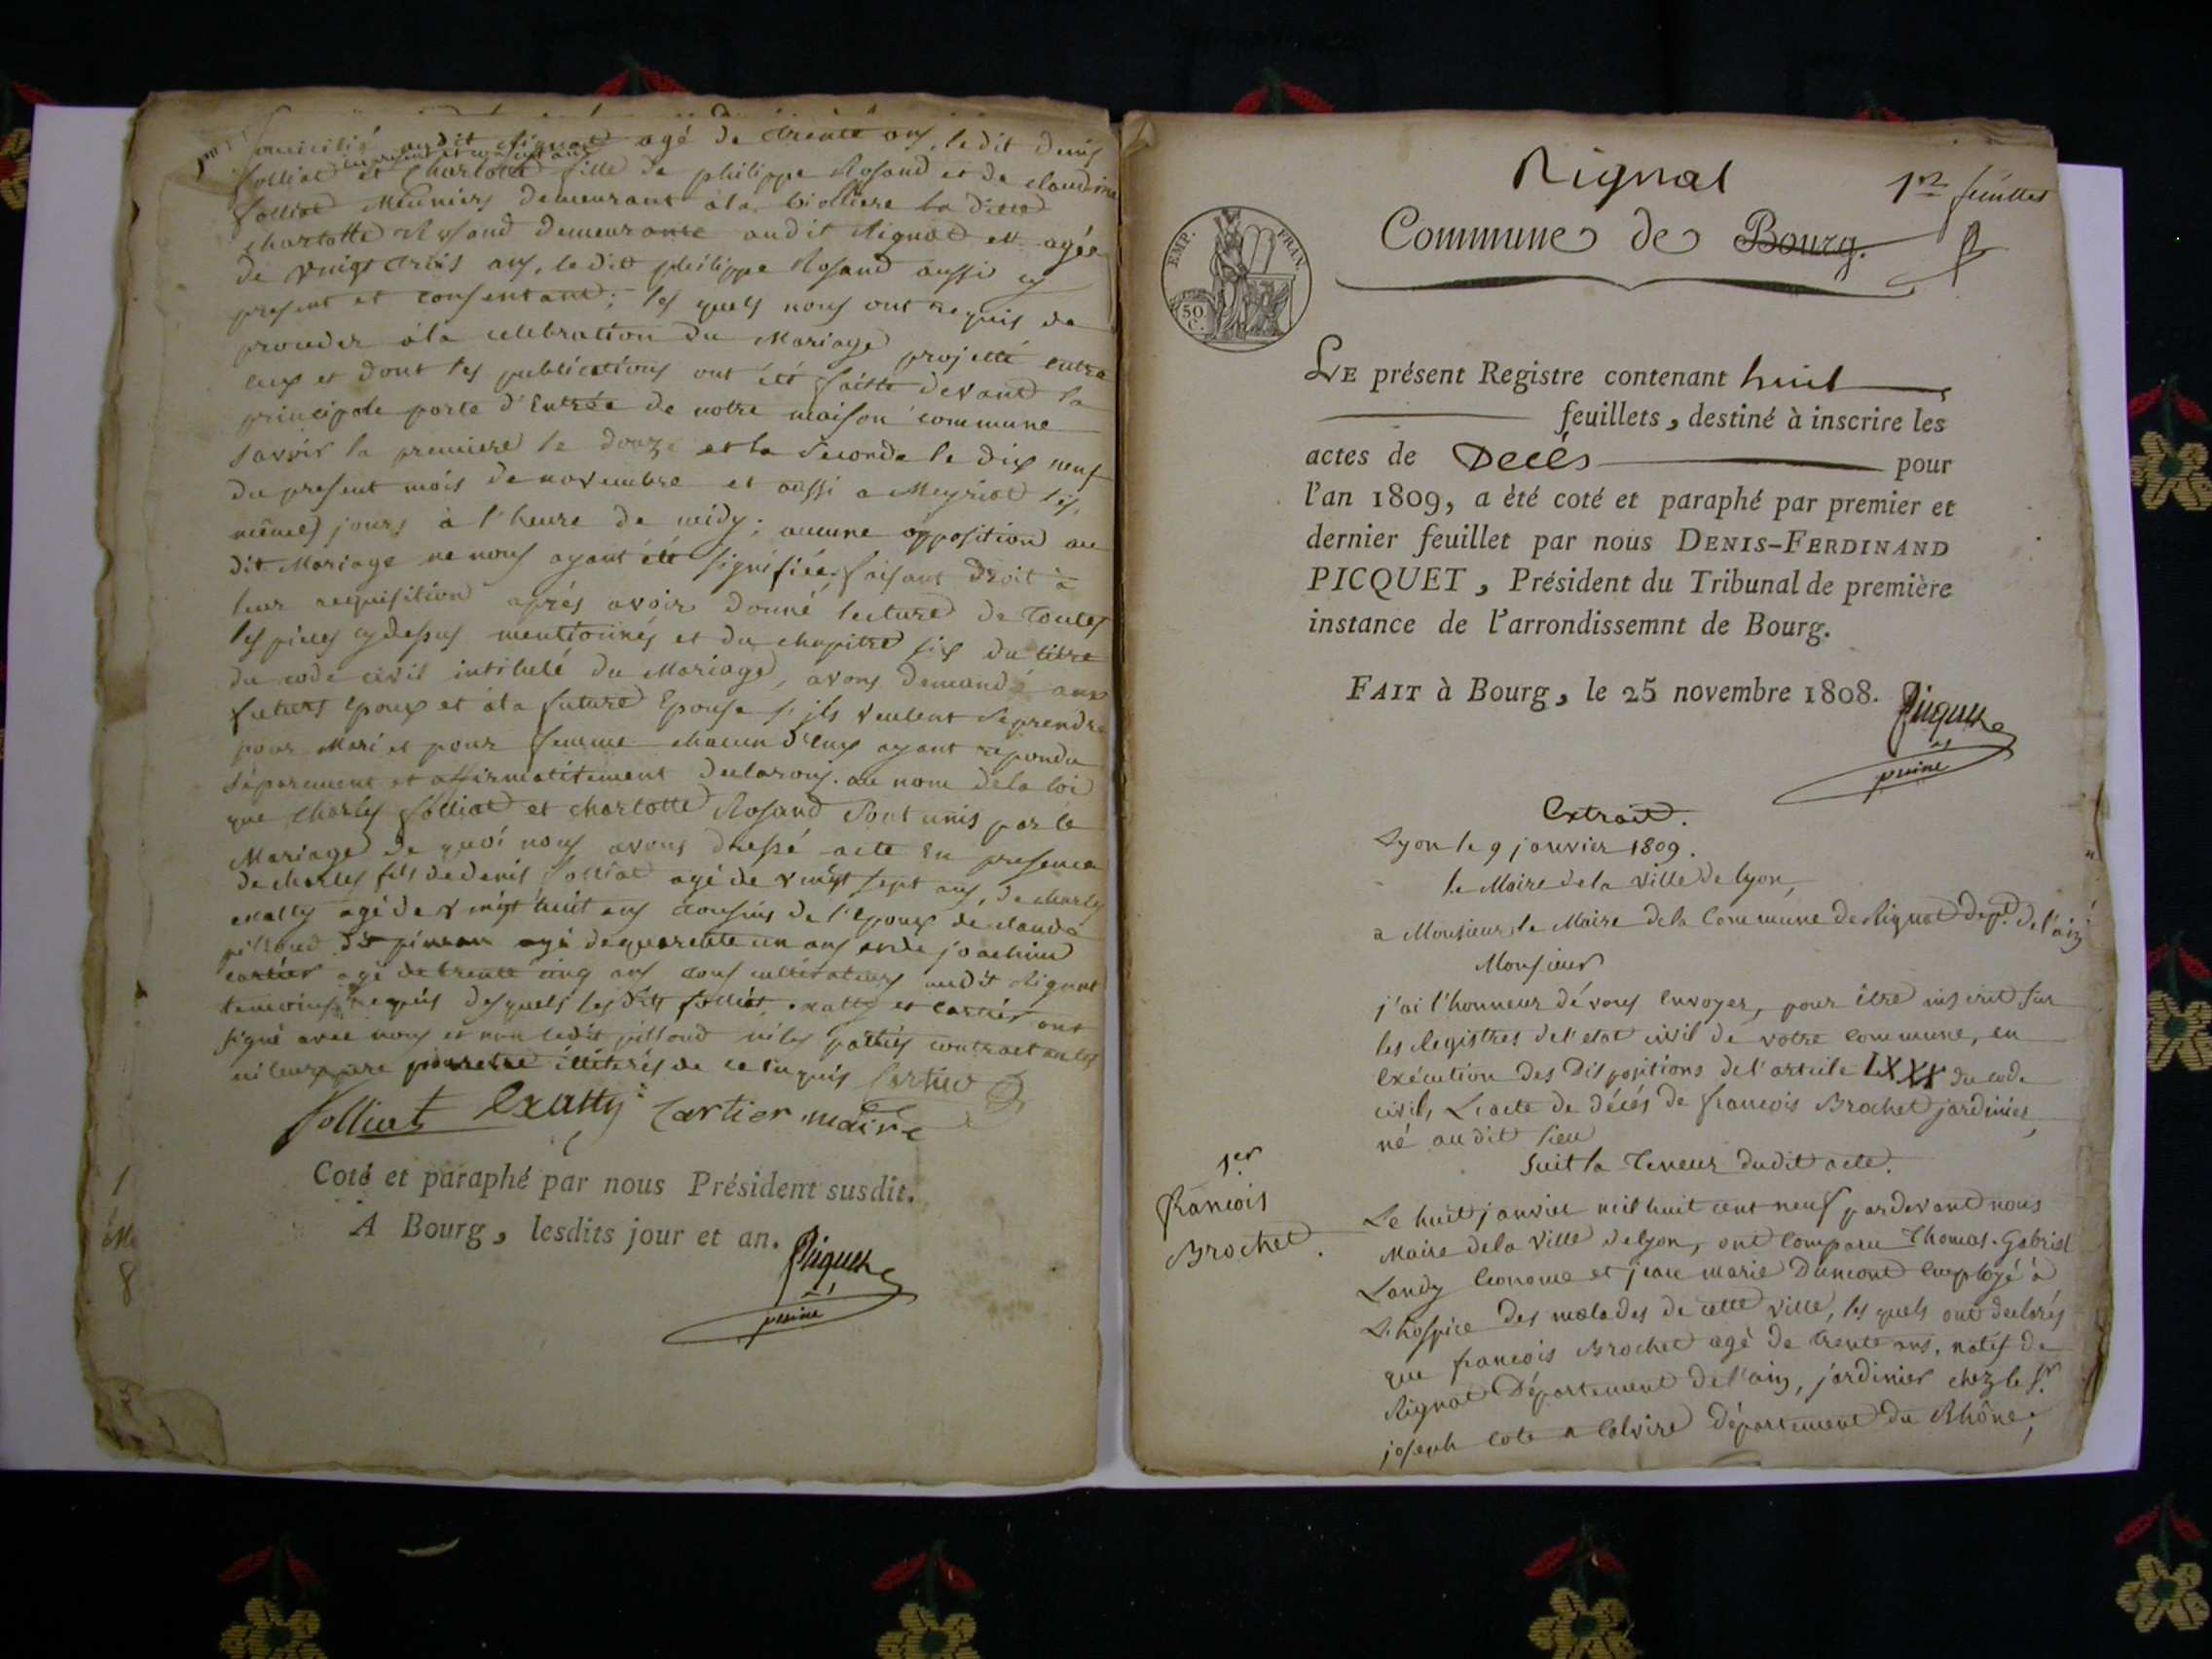 domicilié audit Rignat agé de trente ans, ledit denis
folliat cy present et consentant et Charlotte fille de philippe Rosand et de claudine
folliat Meuniers demeurant à la biolliere la ditte
charlotte Rosand demeurante audit Rignat et agée
de vuingt trois ans, le dit philippe Rosand aussi cy
present et consentant; les quels nous ont requis de
proceder à la celebration du Mariage projetté entre
eux et dont les publications ont été faitte devant la
principale porte d'Entrée de notre maison commune
savoir la premiere le douze et la seconde le dix neuf
du present mois de novembre et aussi a Meyriat les
mêmes jours à l'heure de midy; aucune opposition au
dit Mariage ne nous ayant été signifiée, faisant droit à
leur requisition aprés avoir donné lecture de toutes
les pieces cy dessus mentionnés et du chapitre six du titre
du code civil intitulé du Mariage, avons demandé aux
futurs Epoux et à la future Epouse s'ils veulent se prendre
pour Mari et pour femme chacun d'eux ayant repondu
séparement et affirmatitement declarons au nom de la loi
que Charles folliat et charlotte Rosand sont unis par le
Mariage de quoi nous avons dressé acte En presence
de charles fils de denis folliat agé de vuingt sept ans, de charles
exatty agé de vingt huit ans cousins de l'Epoux de claude
pilloud agé de quarente un ans et de joachim
cartier agé de trente cinq ans tous cultivateurs audit Rignat
temoins requis desquels lesdits folliat, exatty et cartier ont
signé avec nous et non ledit pilloud ni les parties contractantes
ni leur pere pour etre illiterés de ce enquis Cartier
folliat Exatty Cartier maire
Coté et paraphé par nous Président susdit.
A Bourg, lesdits jour et an.
Picquet
Rignat
1er feuillet
Commune de Bourg.
EMP. FRAN.
50 C.
LE présent Registre contenant huit
feuillets, destiné à inscrire les
actes de Decès pour
l'an 1809, a été coté et paraphé par premier et
dernier feuillet par nous DENIS-FERDINAND
PICQUET, Président du Tribunal de première
instance de l'arrondissemnt de Bourg.
FAIT à Bourg, le 25 novembre 1808.
Picquet
Extrait.
Lyon le 9 janvier 1809.
le Maire de la ville de lyon,
a Monsieur le Maire de la Commune de Rignat Dept. de l'ain
Monsieur
j'ai l'honneur dé vous Envoyer, pour être inscrit sur
les Registres de l'etat civil de votre Commune, en
Exécution des Dispositions de l'article LXXX du code
civil, L'acte de décés de francois Brochet jardinier,
né au dit lieu
suit la Teneur dudit acte.
1er
francois
Brochet.
Le huit janvier mil huit cent neuf pardevant nous
Maire de la ville de lyon, ont Comparu Thomas-Gabriel
Landy Econome et jean marie Dumont Employé à
L'hospice des malades de cette ville, les quels ont declarés
que francois Brochet agé de trente ans, natif de
Rignat Département de l'ain, jardinier chez le Sr.
joseph Cote a Calvire Département du Rhône,